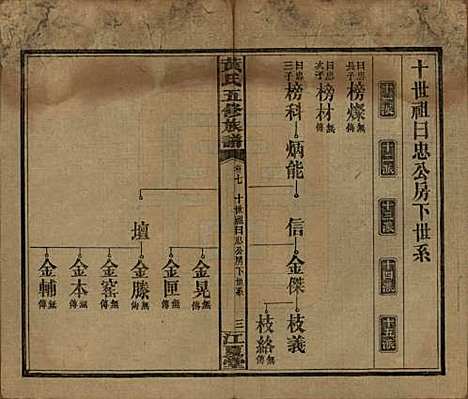 十世祖日忠公房下世系
十一派
十二派
十三派
十四派
十五派
日忠長子 榜燦 無傳
日忠次子 榜材 無傳
日忠三子 榜科
炳能
信
金傑
枝義
枝絡 無傳
黃氏五修族譜
卷七 十世祖日忠公房下世系 三 江夏堂
壇
金晃 無傳
金匣 無傳
金滕 無傳
金窰 無傳
金本 無傳
金輔 無傳